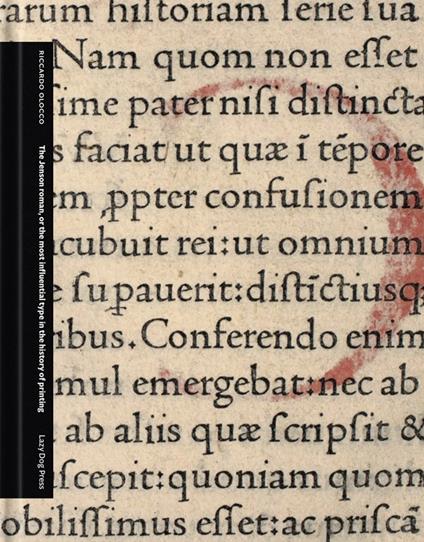 RICCARDO OLOCCO
The Jenson roman, or the most influential type in the history of printing
Lazy Dog Press
rarum hiſtoriam ſerie ſua
Nam quom non eſſet
ſime pater niſi diſtincta
s faciat ut quæ ī tēpore
em ꝓpter confuſionem
cubuit rei:ut omnium
e ſuꝑauerit:diſtīctiusq;
ibus. Conferendo enim
mul emergebat:nec ab
ab aliis quæ ſcripſit &
ſcepit:quoniam quom
obiliſſimus eſſet:ac priſcā